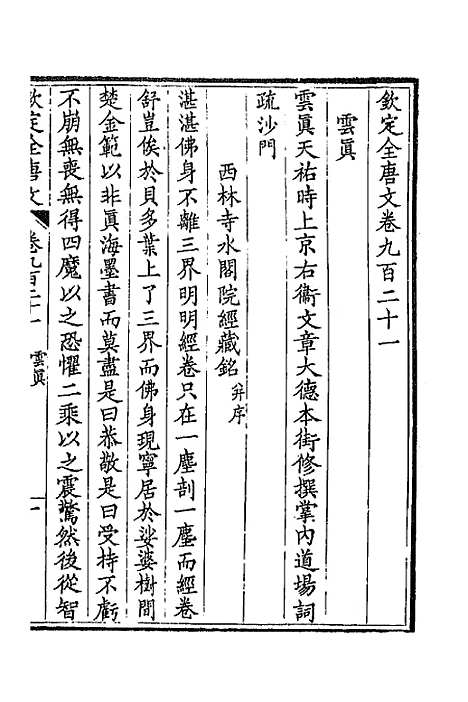 欽定全唐文卷九百二十一
雲眞
雲眞天祐時上京右衞文章大德本街修撰掌內道場詞
疏沙門
西林寺水閣院經藏銘并序
湛湛佛身不離三界明明經卷只在一塵剖一塵而經卷
舒豈俟於貝多葉上了三界而佛身現寧居於娑婆樹間
楚金範以非眞海墨書而莫盡是曰恭敬是曰受持不虧
不崩無喪無得四魔以之恐懼二乘以之震驚然後從智
欽定全唐文 卷九百二十一 雲眞 一